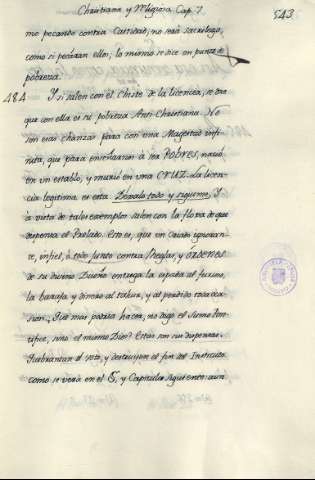 Christiana y Religiosa Cap. 7.
543
mo pecando contra Castidad, no seria sacrilego,
como si pecaran ellos; lo mismo se dice en punto de
pobreza.
484 Y si salen con el Chiste de la licencia, se dira
que con ella es su pobreza Anti-Christiana. No
son esas chanzas para con una Magestad infi-
nita, que para enseñarnos a ser POBRES, nació
en un establo, y murió en una CRUZ. La licen-
cia legitima es esta Dexalo todo y sigueme. Y
a vista de tales exemplos salen con la flor de que
dispensa el Prelado. Esto es, que un Criado ignoran-
te, infiel, o todo junto contra Reglas, y ORDENES
de su divino Dueño entrega la espada al furioso,
la baraja y dinero al tahur, y al perdido toca oca-
sion. Que mas podria hacer, no digo el Sumo Pon-
tifice, sino el mismo Dios? Estas son sus dispensas.
Quebrantan el voto, y destruyen el fin del Instituto
como se verá en el §, y Capitulo siguiente: aun